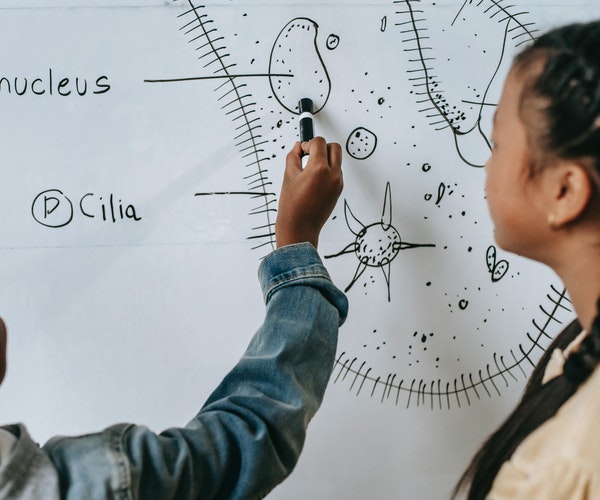 nucleus
D Cilia